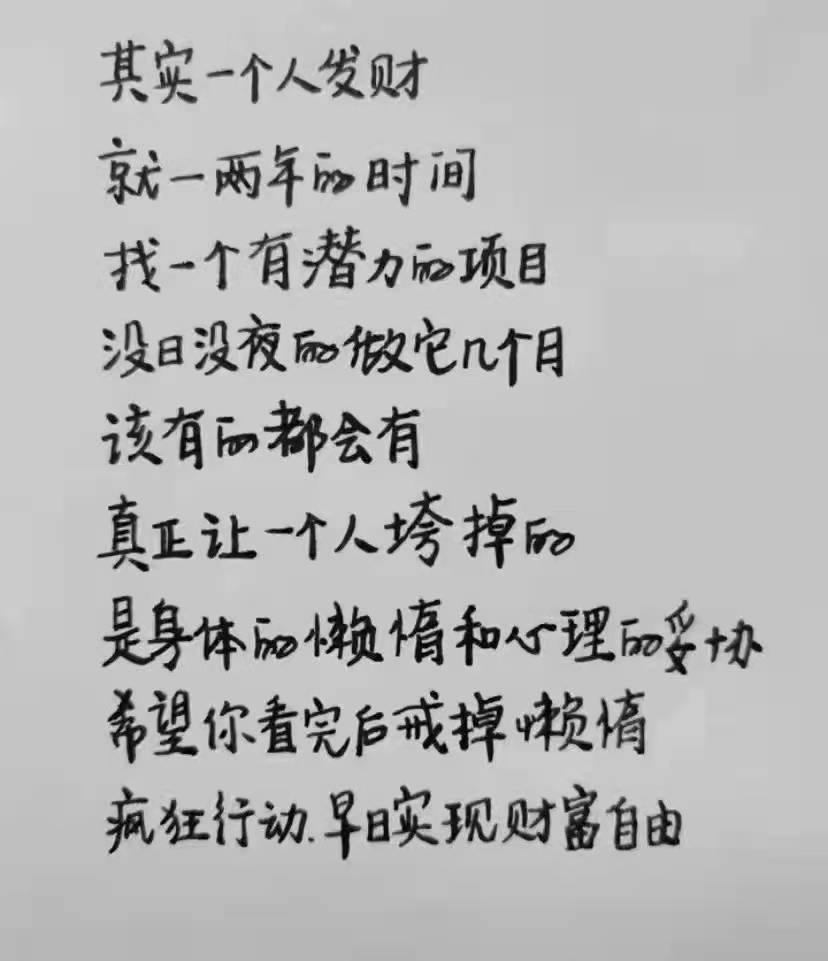 其实一个人发财
就一两年的时间
找一个有潜力的项目
没日没夜的做它几个月
该有的都会有
真正让一个人垮掉的
是身体的懒惰和心理的妥协
希望你看完后戒掉懒惰
疯狂行动.早日实现财富自由